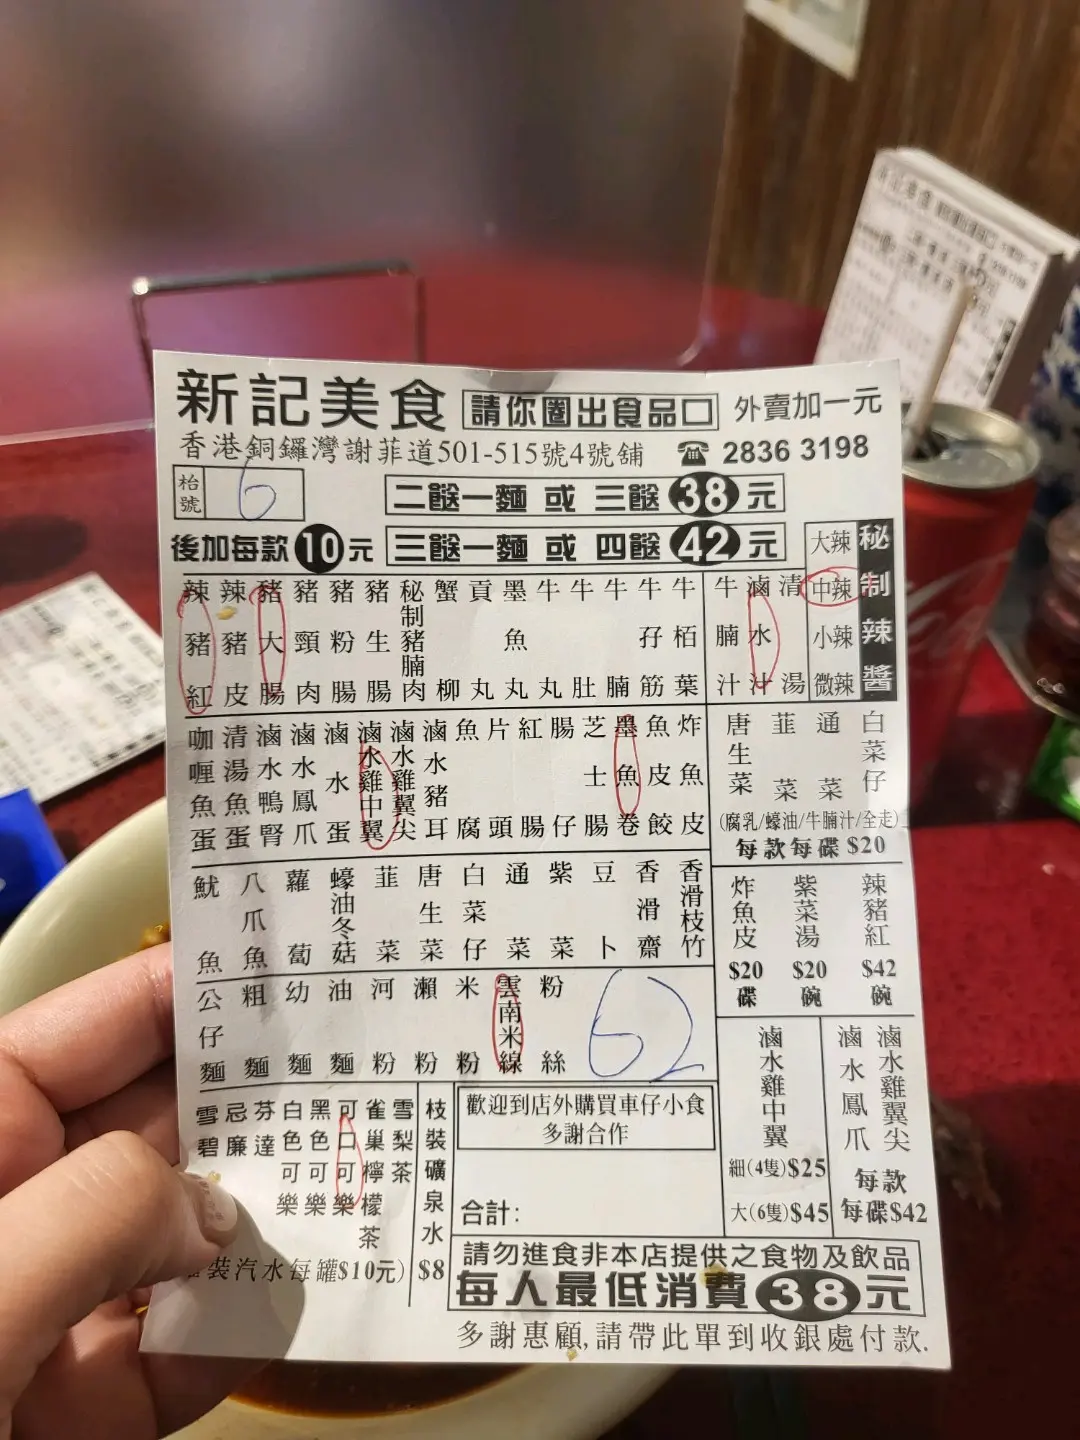 新記美食 請你圈出食品口 外賣加一元
香港銅鑼灣謝菲道501-515號4號舖 ☎ 2836 3198
枱號 6
二餸一麵 或 三餸 38 元
後加每款 10 元 三餸一麵 或 四餸 42 元
秘制辣醬
大辣
中辣
小辣
微辣
辣豬紅
辣豬皮
豬大腸
豬頸肉
豬粉腸
豬生腸
秘制豬腩肉
蟹柳
貢丸
墨魚丸
牛丸
牛肚
牛腩
牛孖筋
牛栢葉
牛腩汁
滷水汁
清湯
咖喱魚蛋
清湯魚蛋
滷水鴨腎
滷水鳳爪
滷水蛋
滷水雞中翼
滷水雞翼尖
滷水豬耳
魚腐
片頭
紅腸
腸仔
芝士腸
墨魚卷
魚皮餃
炸魚皮
唐生菜
韮菜
通菜
白菜仔
(腐乳/蠔油/牛腩汁/全走)
每款每碟 $20
魷魚
八爪魚
蘿蔔
蠔油冬菇
韮菜
唐生菜
白菜仔
通菜
紫菜
豆卜
香滑齋
香滑枝竹
炸魚皮 $20 碟
紫菜湯 $20 碗
辣豬紅 $42 碗
公仔麵
粗麵
幼麵
油麵
河粉
瀨粉
米粉
雲南米線
粉絲
62
滷水雞中翼
細(4隻)$25
大(6隻)$45
滷水鳳爪
滷水雞翼尖
每款
每碟$42
雪碧
忌廉
芬達
白色可樂
黑色可樂
可口可樂
雀巢檸檬茶
雪梨茶
裝汽水每罐$10元)
枝裝礦泉水 $8
歡迎到店外購買車仔小食
多謝合作
合計:
請勿進食非本店提供之食物及飲品
每人最低消費 38 元
多謝惠顧,請帶此單到收銀處付款.